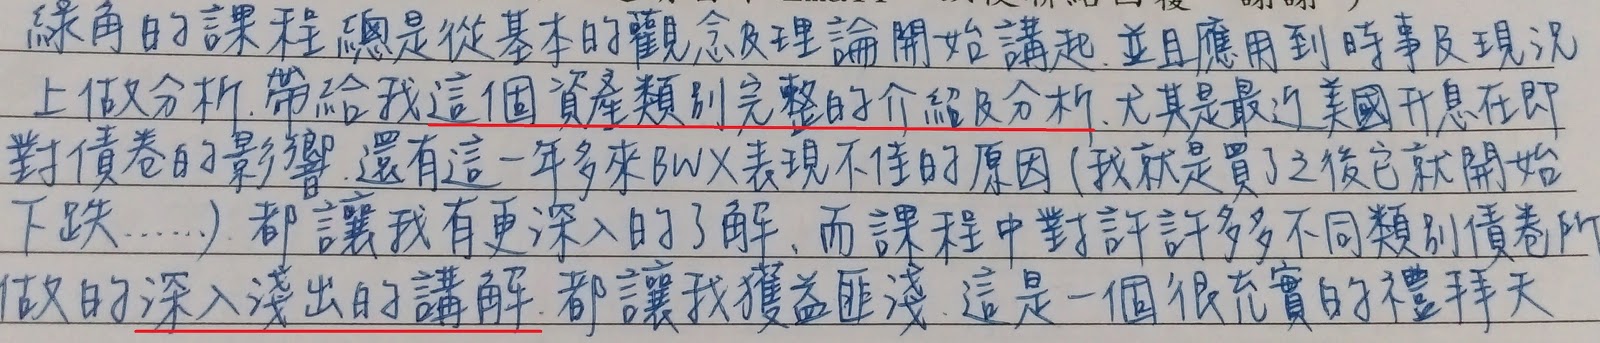 綠角的課程總是從基本的觀念及理論開始講起.並且應用到時事及現況
上做分析.帶給我這個資產類別完整的介紹及分析.尤其是最近美國升息在即
對債卷的影響.還有這一年多來BWX表現不佳的原因(我就是買了之後它就開始
下跌......).都讓我有更深入的了解.而課程中對許許多多不同類別債卷所
做的深入淺出的講解.都讓我獲益匪淺.這是一個很充實的禮拜天